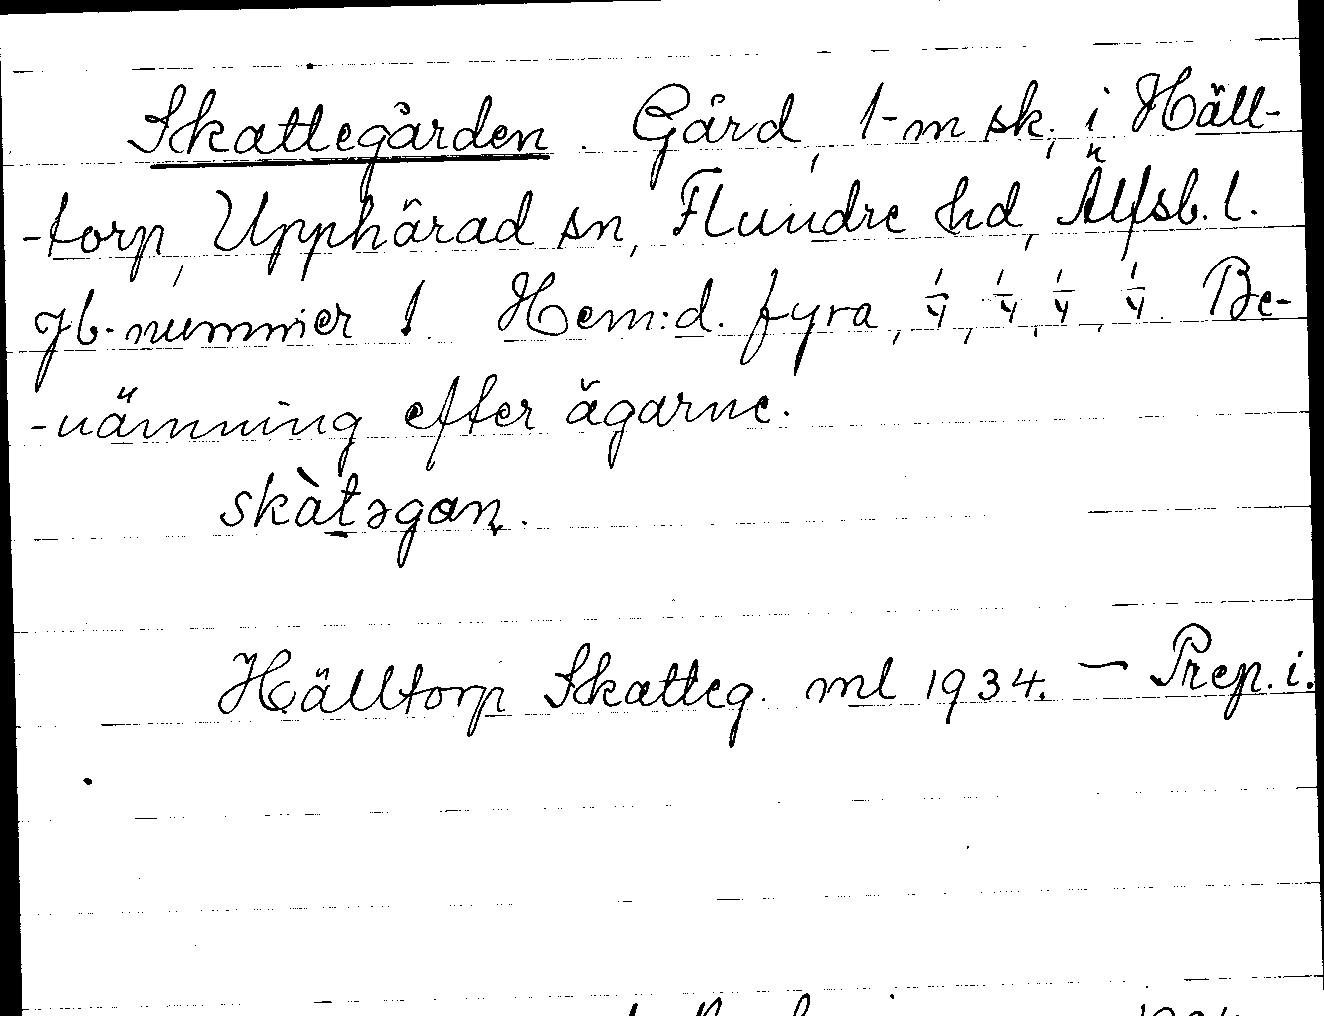 Skattegården. Gård, 1-m sk, i Häll-
-torp, Upphärad sn, Flundre hd, Älfsb. l.
Jb-nummer 1 Hem:d. fyra, 1/4, 1/4, 1/4, 1/4. Be-
-nämning efter ägarne.
skàtəgan.
Hälltorp Skatteg. ml 1934. — Prep. i.